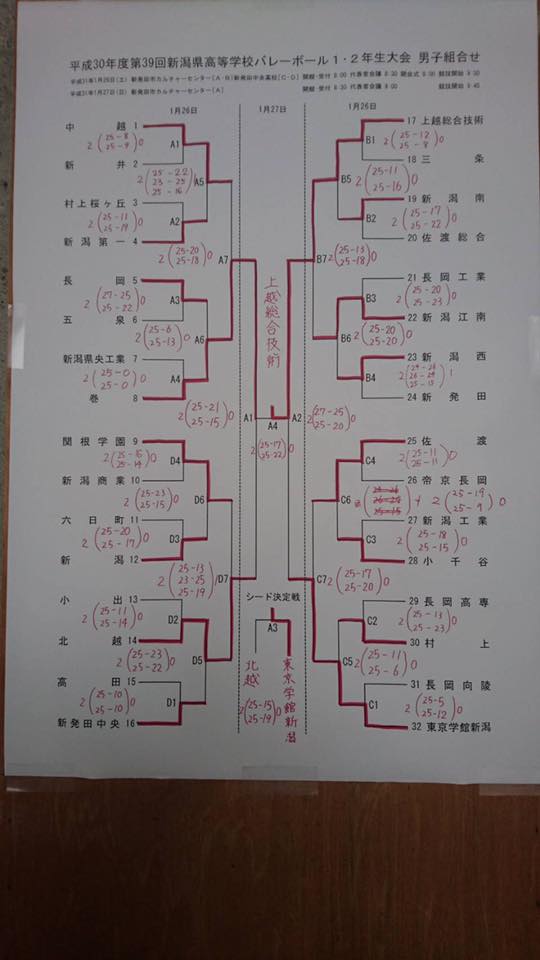 平成30年度第39回新潟県高等学校バレーボール１・２年生大会 男子組合せ
平成31年1月26日(土) 新発田市カルチャーセンター[A・B]新発田中央高校[C・D] 開館・受付 8:00 代表者会議 8:30 開会式 9:00 競技開始 9:30
平成31年1月27日(日) 新発田市カルチャーセンター[A] 開館・受付 8:30 代表者会議 9:00 競技開始 9:45
1月26日
1月27日
1月26日
中越 1
2(25-8 25-9)0
A1
新井 2
2(25-22 23-25 25-16)
A5
村上桜ヶ丘 3
2(25-11 25-19)0
A2
新潟第一 4
2(25-20 25-18)0
A7
長岡 5
2(27-25 25-22)0
A3
五泉 6
2(25-6 25-13)0
A6
新潟県央工業 7
2(25-0 25-0)0
A4
巻 8
2(25-21 25-15)0
A1
関根学園 9
2(25-16 25-14)0
D4
新潟商業 10
2(25-23 25-15)0
D6
六日町 11
2(25-20 25-17)0
D3
新潟 12
2(25-13 23-25 25-19)
D7
小出 13
2(25-11 25-14)0
D2
北越 14
2(25-23 25-22)0
D5
高田 15
2(25-10 25-10)0
D1
新発田中央 16
上越総合技術
A4
2(25-17 25-22)0
シード決定戦
A3
北越
東京学館新潟
2(25-15 25-19)0
17 上越総合技術
B1
2(25-12 25-8)0
18 三条
B5
2(25-11 25-16)0
19 新潟南
B2
2(25-17 25-22)0
20 佐渡総合
B7
2(25-13 25-18)0
21 長岡工業
B3
2(25-20 25-23)0
22 新潟江南
B6
2(25-20 25-20)0
23 新潟西
B4
24 新発田
A2
2(27-25 25-20)0
25 佐渡
C4
2(25-11 25-11)0
26 帝京長岡
C6
2(25-19 25-9)0
27 新潟工業
C3
2(25-18 25-15)0
28 小千谷
C7
2(25-17 25-20)0
29 長岡高専
C2
2(25-13 25-23)0
30 村上
C5
2(25-11 25-6)0
31 長岡向陵
C1
2(25-5 25-12)0
32 東京学館新潟